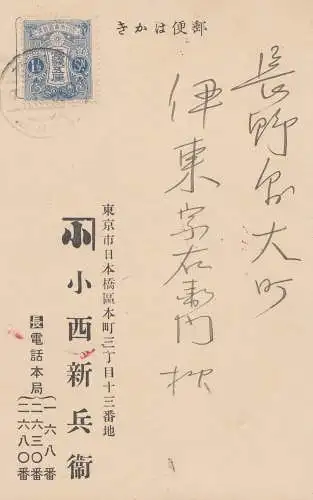 郵便はかき
長野縣大町
伊東宗右衛門様
東京市日本橋區本町三丁目十三番地
小 小西新兵衞
長 電話本局
一六八番
二六三〇番
二六八〇番